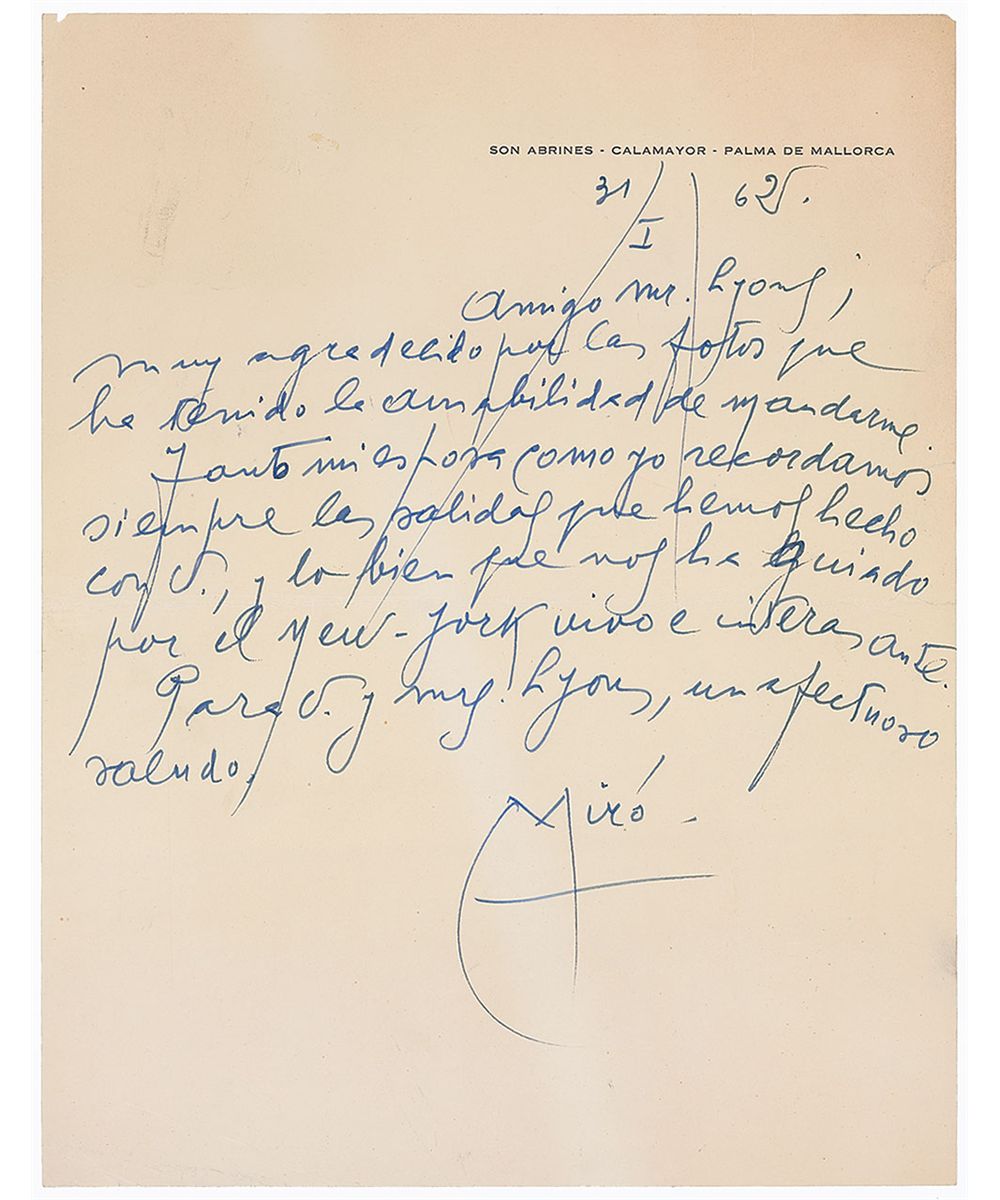 SON ABRINES - CALAMAYOR - PALMA DE MALLORCA
31/I/625.
Amigo Mr. Lyons,
muy agradecido por las fotos que
ha tenido la amabilidad de mandarme.
Tanto mi esposa como yo recordamos
siempre las salidas que hemos hecho
con V., y lo bien que nos ha guiado
por el New-York vivo e interasante.
Para V. y Mrs. Lyons, un afectuoso
saludo.
Miró.